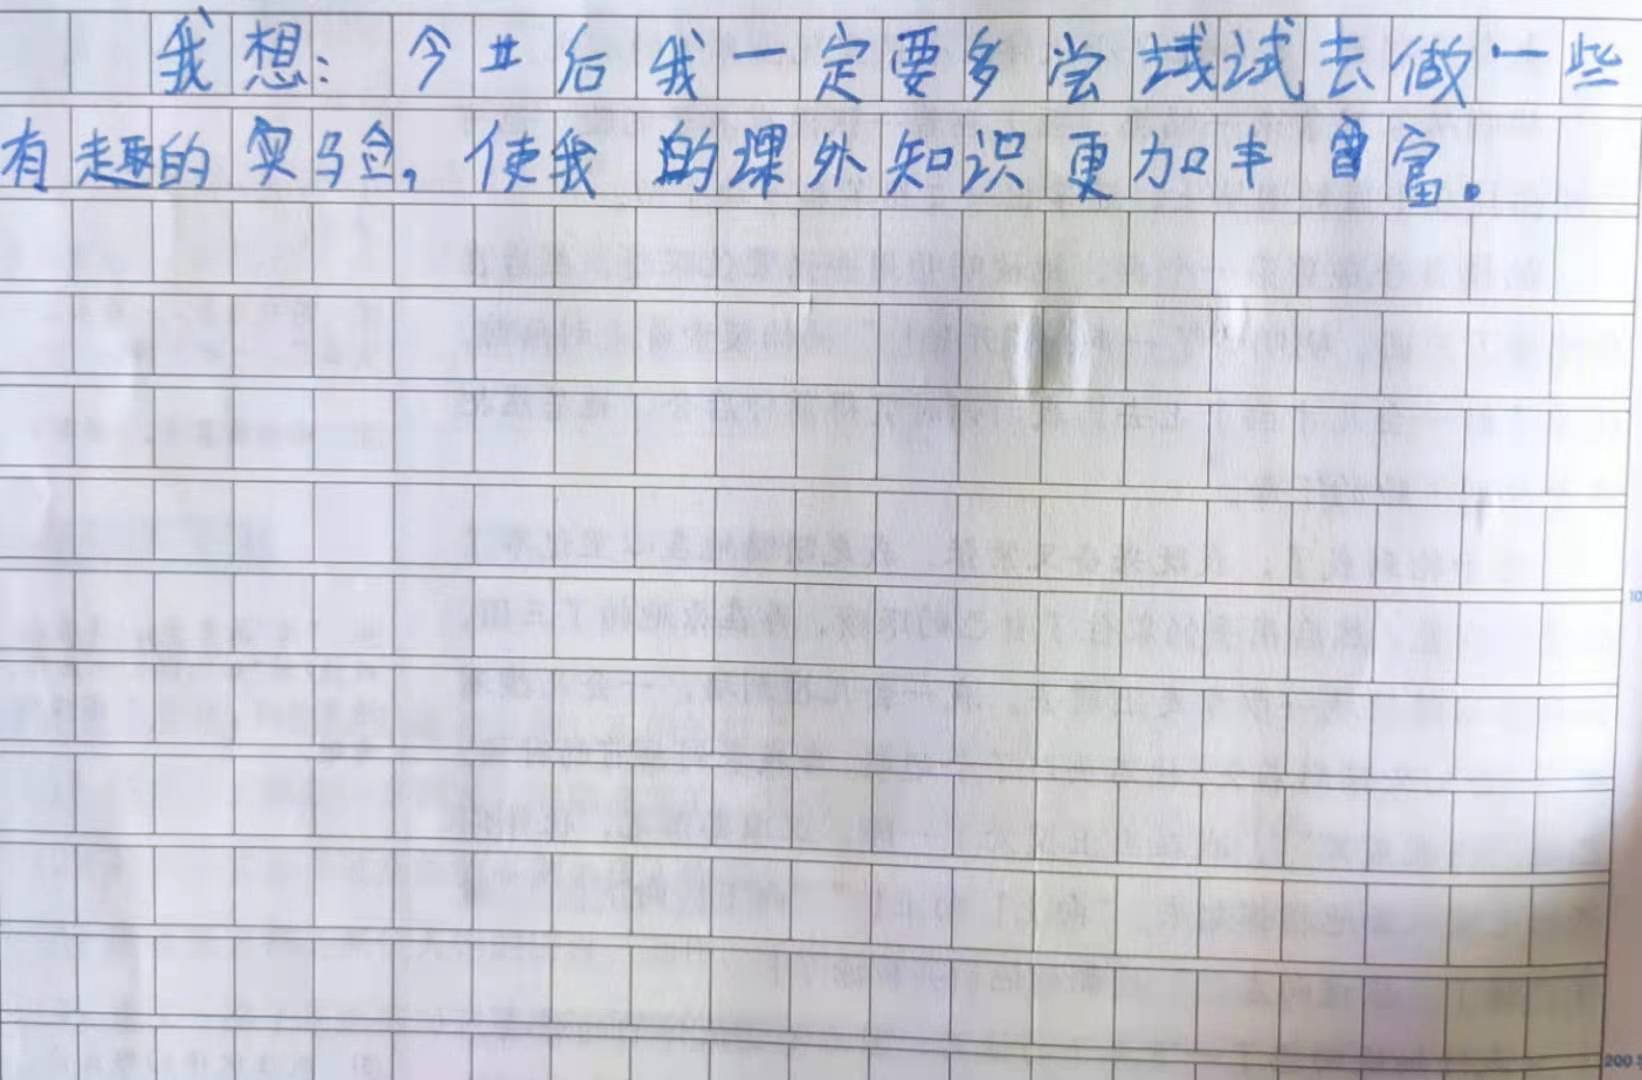 我想：今后我一定要多尝试试去做一些
有趣的实验，使我的课外知识更加丰富。
200